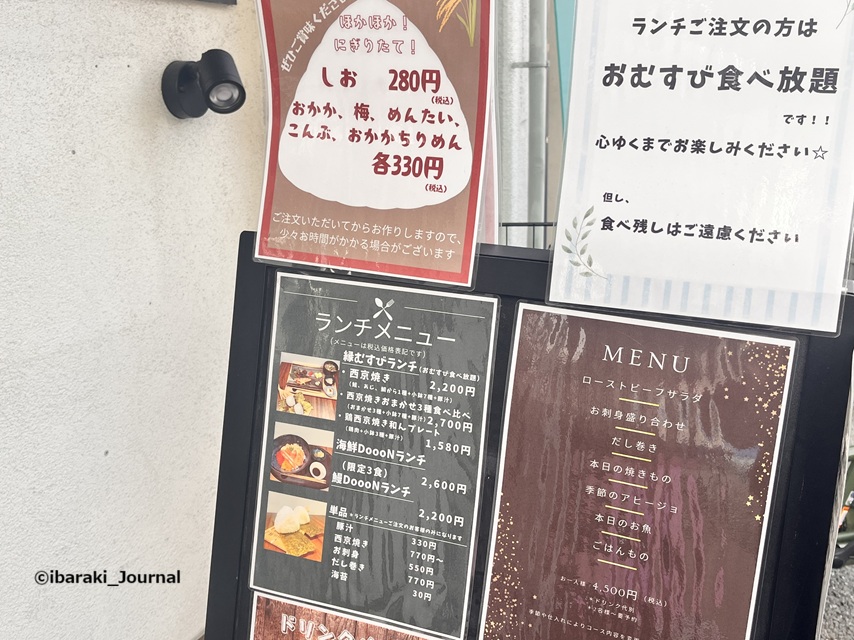 ぜひご賞味ください
ほかほか！
にぎりたて！
しお 280円
(税込)
おかか、梅、めんたい、
こんぶ、おかかちりめん
各330円
(税込)
ご注文いただいてからお作りしますので、
少々お時間がかかる場合がございます
ランチご注文の方は
おむすび食べ放題
です！！
心ゆくまでお楽しみください☆
但し、
食べ残しはご遠慮ください
ランチメニュー
(メニューは税込価格表記です)
縁むすびランチ(おむすび食べ放題)
・西京焼き 2,200円
・西京焼きおまかせ3種食べ比べ
(おまかせ3種+小鉢7種+豚汁) 2,700円
・鶏西京焼き和んプレート
(鶏肉+小鉢3種+豚汁) 1,580円
海鮮DoooNランチ
(限定3食) 2,600円
鰻DoooNランチ
2,200円
単品 *ランチメニューご注文のお客様のみになります
豚汁 330円
西京焼き 770円～
お刺身 550円
だし巻き 770円
海苔 30円
MENU
ローストビーフサラダ
お刺身盛り合わせ
だし巻き
本日の焼きもの
季節のアヒージョ
本日のお魚
ごはんもの
お一人様 4,500円 (税込)
*ドリンク代別
*2名様～要予約
季節や仕入れによりコース内容を
ドリンク
©ibaraki_Journal